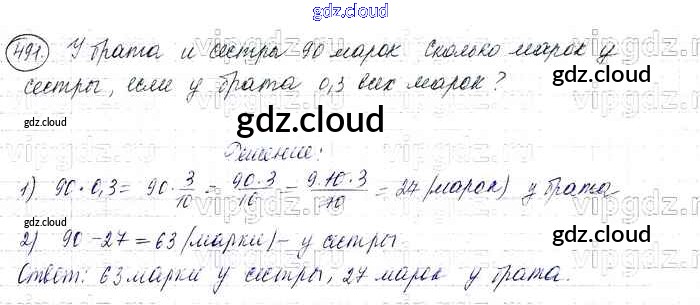 gdz.cloud
491. У брата и сестра 90 марок. Сколько марок у
сестры, если у брата 0,3 всех марок?
gdz.cloud
gdz.cloud
gdz.cloud
Решение:
1) 90 · 0,3 = 90 · 3/10 = 90·3/10 = 9·10·3/10 = 27 (марок) у брата
gdz.cloud
gdz.cloud
2) 90 - 27 = 63 (марки) - у сестры.
Ответ: 63 марки у сестры, 27 марок у брата.
gdz.cloud
gdz.cloud